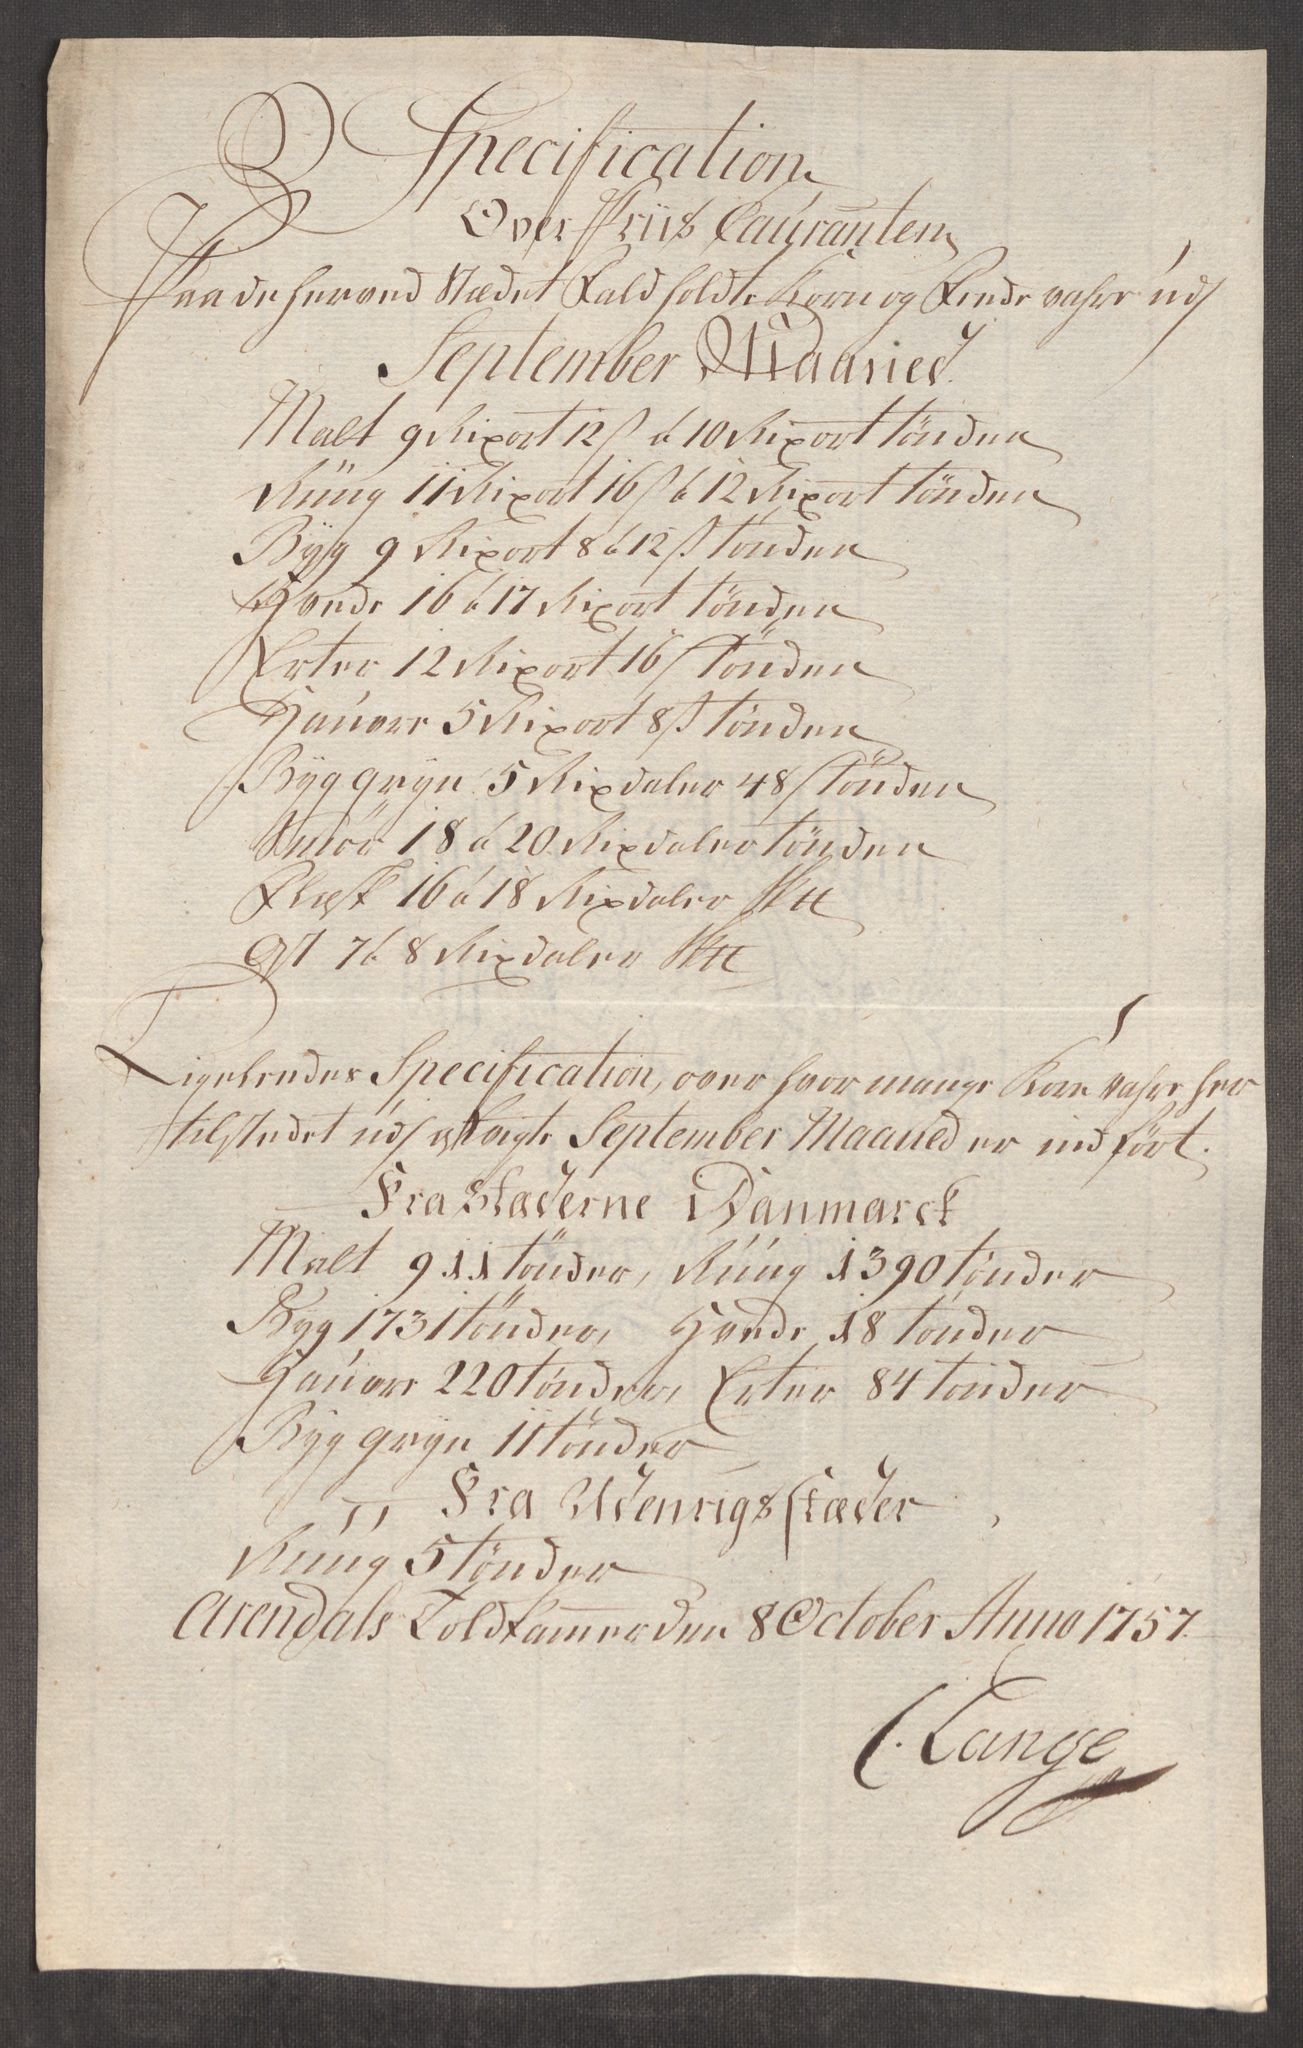 Specification
Over Priis Couranten
Paa de her ved Stædet Fald holdte Korn og Fede vahre udj
September Maaned
Malt 9 Rixort 12 s a 10 Rixort tönden
Rüug 11 Rixort 16 s a 12 Rixort tönden
Byg 9 Rixort 8 a 12 s tönden
Hvede 16 a 17 Rixort tönden
Erter 12 Rixort 16 s tönden
Haure 5 Rixort 8 s tönden
Byg gryn 5 Rixdaler 48 s tönden
Smör 18 a 20 Rixdaler tönden
Flesk 16 a 18 Rixdaler Sk tt
Ost 7 a 8 Rixdaler Sk tt
Ligeleedes Specification, over hvor mange Korn vahre her
til stedet udj September Maaned er indfört.
Fra Stæderne i Danmarck
Malt 911 tönder, Rúúg 1390 tönder
Byg 1731 tönder, Hvede 18 tönder
Haure 220 tönder, Erter 84 tönder
Byg gryn 11 tönder
Fra Udenrigs stæder
Rúúg 5 tönder
Arendals Toldkammer den 8 October Anno 1757.
C. Lange